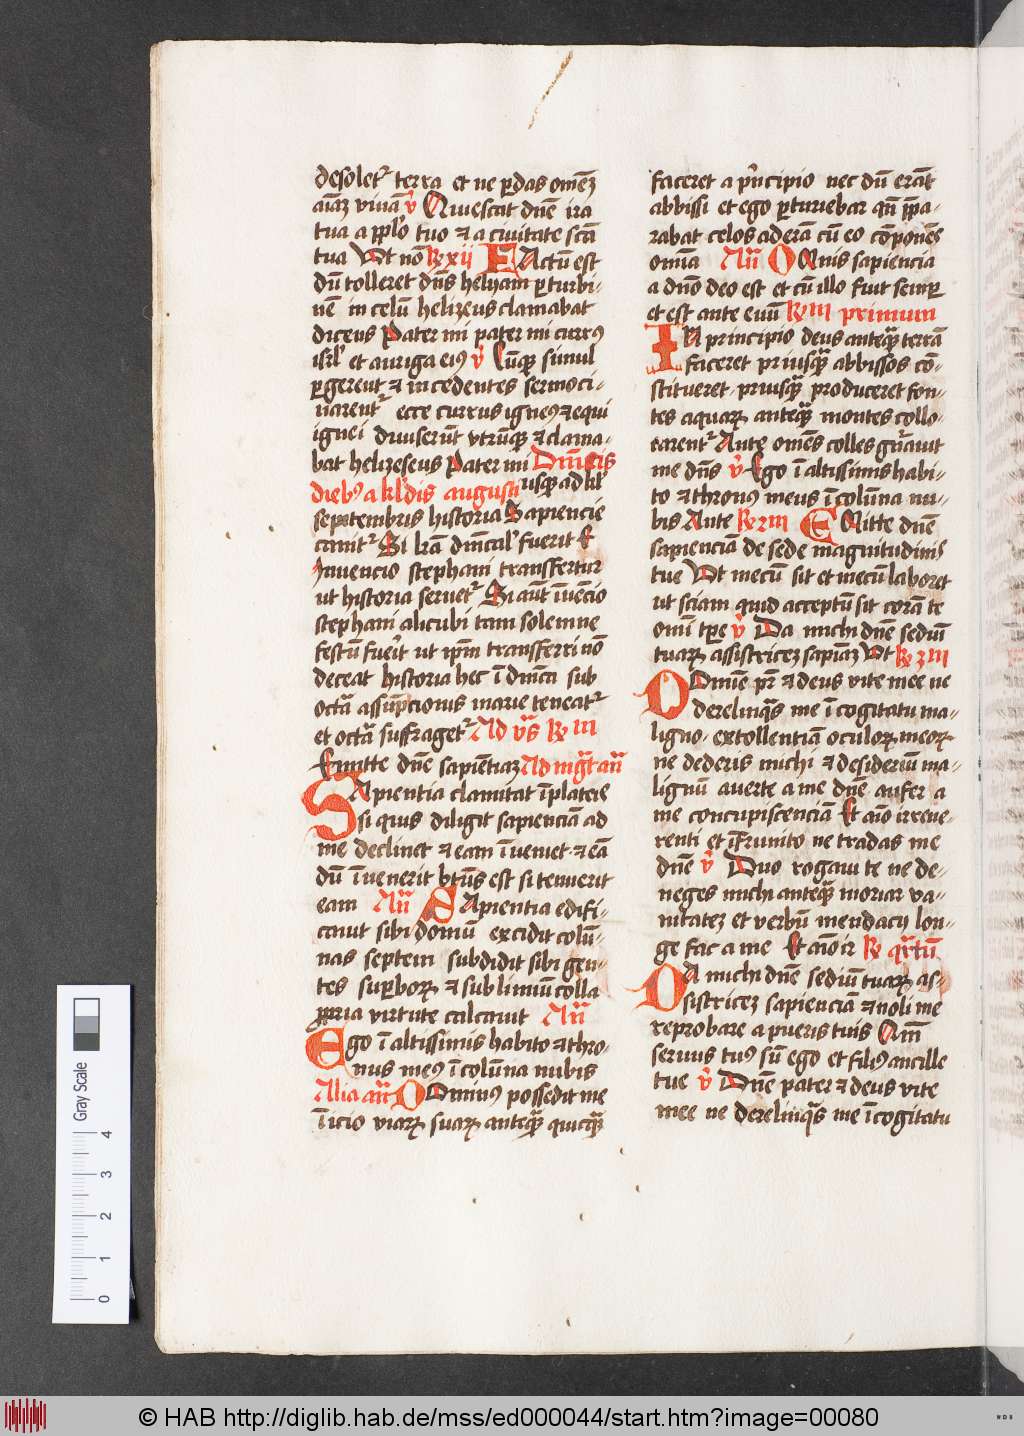 desoletr terra et ne perdas omnez
aīaz viuā v̕ Quiescat dn̄e ira
tua a pplo tuo et a ciuitate scā
tua Vt nō Rxii FActū est
dū tolleret dn̄s helyam per turbi-
nē in celū helizeus clamabat
dicens Pater mi pater mi currꝰ
isrl et auriga eiꝰ v̕ Cūqꝫ simul
pergerent et incedentes sermoci-
narentr ecce currus igneꝰ et equi
ignei diuiserūt vtrūqꝫ et clama-
bat helizeseus Pater mi Dn̄icis
diebꝰ a kl̕dis augusti usqꝫ ad kl̕
septembris historia Sapiencie
canitr Si lr̄am dn̄cal̕ fuerit E
Inuencio stephani transfertur
ut historia seruetr Si aūt īuēcio
stephani alicubi tam solemne
festū fuerit ut ipm̄ transferri nō
deceat historia hec ī dn̄ica sub
octā assūpcionis marie teneatr
et octā suffragetr Ad v̄s R III
Emitte dn̄e sapientiaz Ad mgt̄ an̄
SApientia clamitat ī plateis
si quis diligit sapienciā ad
me declinet et eam īueniet et eā
dū īuenerit btūs est si tenuerit
eam An̄ SApientia edifi-
cauit sibi domū excidit colū-
nas septem subdidit sibi gen-
tes superborꝝ et sublimiū colla
propria virtute calcauit An̄
Ego ī altissimis habito et thro-
nus meꝰ ī colūna nubis
Alia an̄ DOminꝰ possedit me
īicio viarꝝ suarꝝ anteqꝫ quicqꝫ
faceret a prīncipio nec dū erāt
abbissi et ego parturiebar qn̄ p̄pa-
rabat celos aderā cū eo cōponēs
omia An̄ OMnis sapiencia
a dn̄o deo est et cū illo fuit semper
et est ante euū R III primum
IN principio deus anteqꝫ terrā
faceret priusqꝫ abbissos cō-
stitueret priusqꝫ produceret fon-
tes aquarꝝ anteqꝫ montes collo-
carentr Ante omēs colles gn̄auit
me dn̄s v̕ Ego ī altissimis habi-
to et thronꝰ meus ī colūna nu-
bis Ante R 2 III EMitte dn̄e
sapienciā de sede magnitudinis
tue Vt mecū sit et mecū laboret
ut sciam quid acceptū sit corā te
omi tp̄e v̕ Da michi dn̄e sediū
tuarꝝ assistricez sapīaz Vt R 3 III
DOmine pr̄ et deus vite mee ne
derelinqs me ī cogitatu ma-
ligno extollentiā oculorꝝ meorꝝ
ne dederis michi et desideriū ma-
lignū auerte a me dn̄e aufer a
me concupiscenciā Et aīo irreue-
renti et īfrunito ne tradas me
dn̄e v̕ Duo rogaui te ne de-
neges michi anteqꝫ moriar va-
nitatez et verbū mendacij lon-
ge fac a me Et aīo ir R qrtū
DA michi dn̄e sediū tuarꝝ as-
sistricez sapienciā et noli me
reprobare a pueris tuis Qm̄
seruus tuꝰ sū ego et filiꝰ ancille
tue v̕ Dn̄e pater et deus vite
mee ne derelinqs me ī cogitatu
Gray Scale
0 1 2 3 4
© HAB http://diglib.hab.de/mss/ed000044/start.htm?image=00080